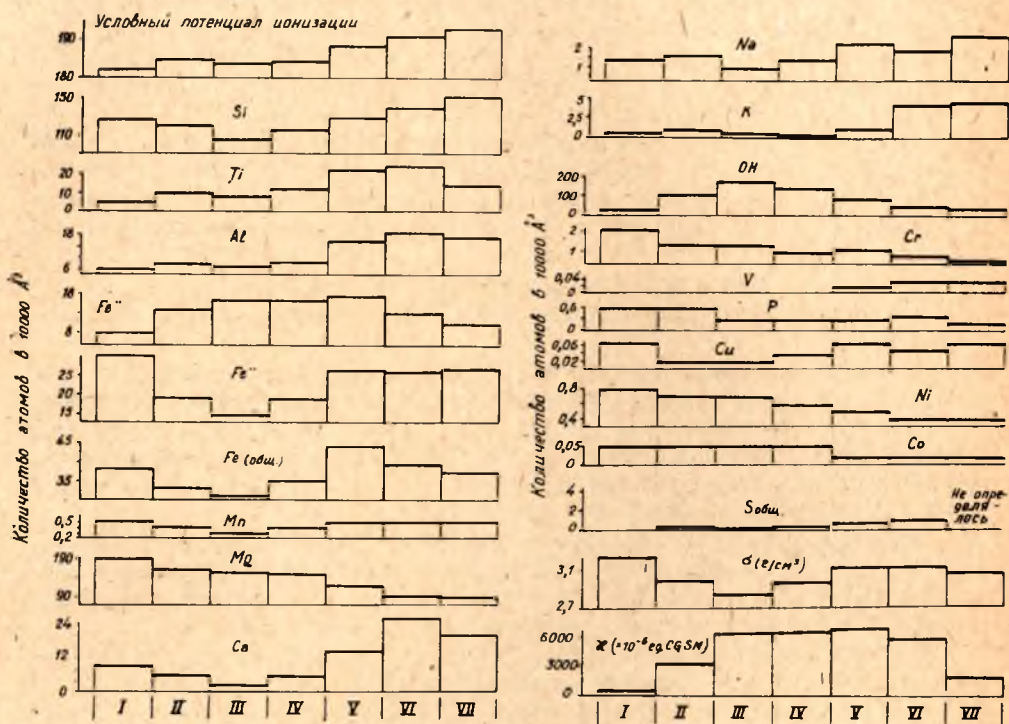 Условный потенциал ионизации
190
180
Si
150
110
Ti
20
10
0
Al
18
6
Fe''
18
8
Fe'''
25
20
15
Fe (общ.)
45
35
Mn
0,5
0,2
Mg
190
90
Ca
24
12
0
I II III IV V VI VII
Количество атомов в 10000 Å³
Na
2
1
K
5
2,5
0
OH
200
100
0
Cr
2
1
V
0,04
0
P
0,6
0
Cu
0,06
0,02
Ni
0,8
0,4
Co
0,05
0
Sобщ
4
2
0
Не опре
деля -
лось
σ (г/см³)
3,1
2,7
ϰ (=10⁻⁶ ед. CGSM)
6000
3000
0
I II III IV V VI VII
Количество атомов в 10000 Å³